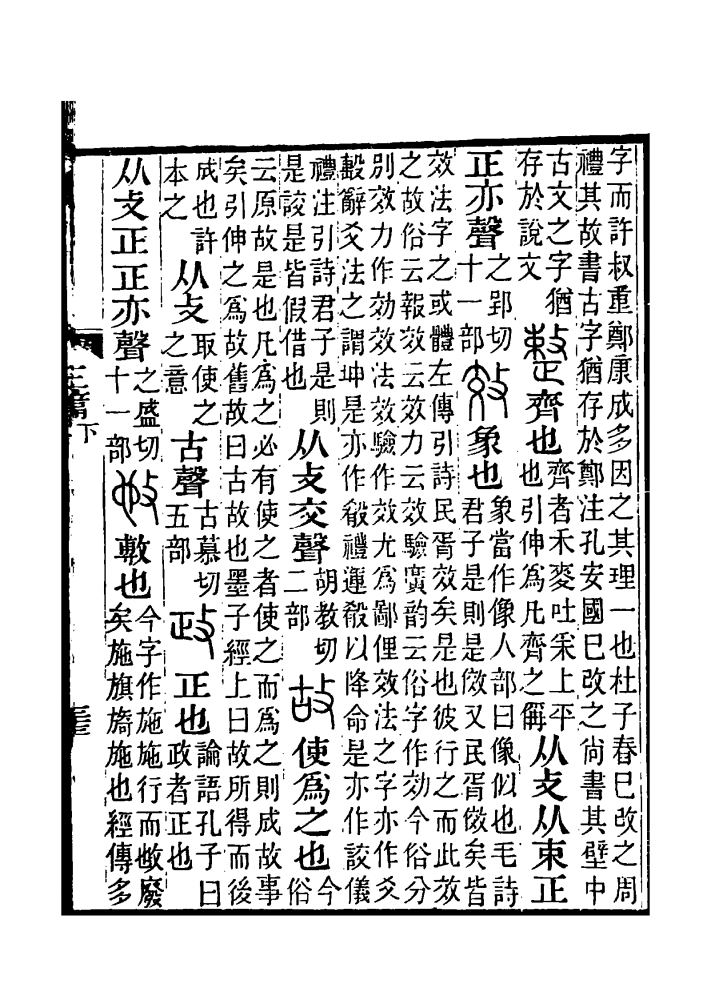 字而許叔重鄭康成多因之其理一也杜子春巳改之周
禮其故書古字猶存於鄭注孔安國巳改之尙書其壁中
古文之字猶存於說文整齊也齊者禾麥吐采上平也引伸爲凡齊之偁从攴从束正
正亦聲之郢切十一部效象也象當作像人部曰像似也毛詩君子是則是傚又民胥傚矣皆
效法字之或體左傳引詩民胥效矣是也彼行之而此效
之故俗云報效云效力云效驗廣韵云俗字作効今俗分
別效力作効效法效驗作效尤爲鄙俚效法之字亦作爻
毄辭爻法之謂坤是亦作殽禮運殽以降命是亦作詨儀
禮注引詩君子是則是詨是皆假借也从攴交聲胡教切二部故使爲之也今俗
云原故是也凡爲之必有使之者使之而爲之則成故事
矣引伸之爲故舊故曰古故也墨子經上曰故所得而後
成也許本之从攴取使之之意古聲古慕切五部政正也論語孔子曰政者正也
从攴正正亦聲之盛切十一部𢻱敷也今字作施施行而𢻱廢矣施旗旖施也經傳多
三篇下